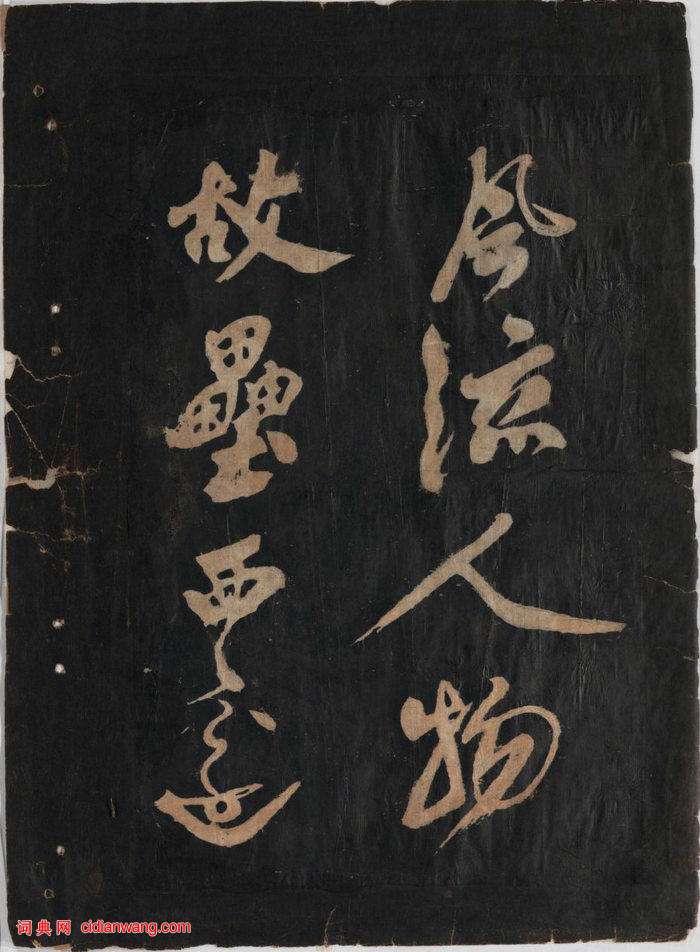 风流人物
故壘西邊
词典网 cidianwang.com